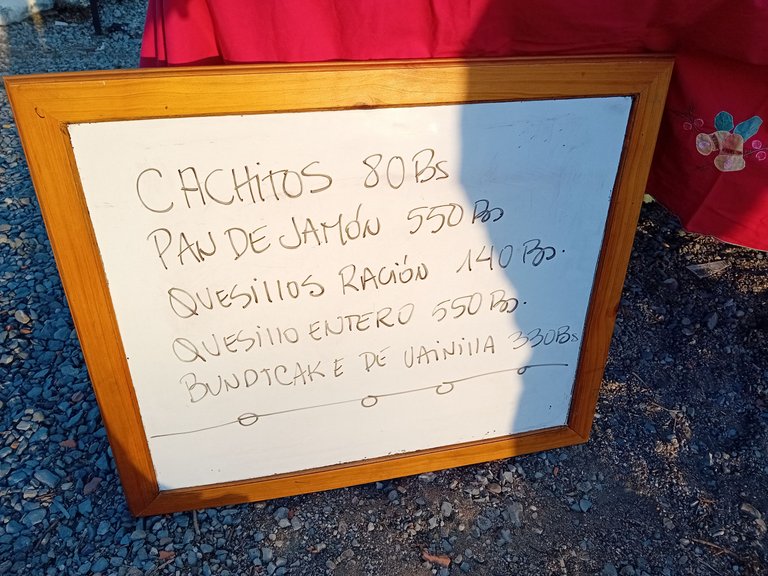 CACHITOS 80Bs
PAN DE JAMÓN 550Bs
QUESILLOS RACIÓN 140Bs.
QUESILLO ENTERO 550Bs.
BUNDTCAKE DE VAINILLA 330Bs